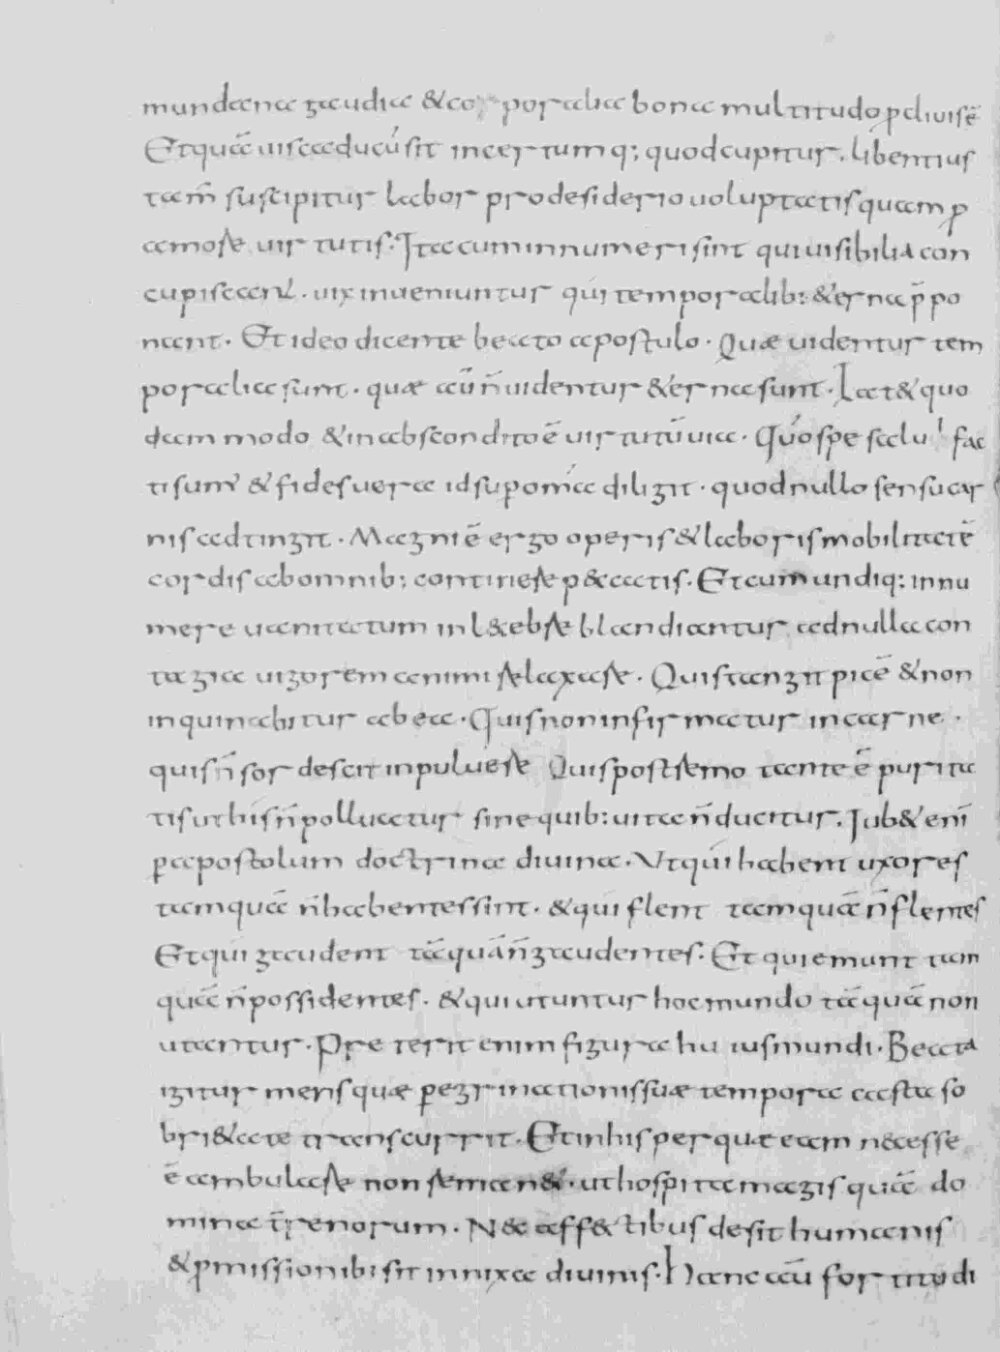 mundana gaudia &corporalia bona multitudo p̱cliuisē
Etquā uiscaducū sit incertumq; quodcupitur. libentius
tam̄ suscipitur labor prodesiderio uoluptatisquam p̱
amore uirtutis. Itacuminnumeri sint quiuisibilia con
cupiscant. uix inueniuntur qui temporalib; &erna p̄po
nant. Et ideo dicente beato apostulo. Quae uidentur tem
poralia sunt. quae aū n̄uidentur &erna sunt. Lat& quo
dam modo &inabscondito ē uirtutū uia. Quo spe salu fac
ti sum' &fides uera id suꝑom̄a diligit. quodnullo sensucar
nis adtingit. Magni ē ergo operis &laboris mobilitatē
cordis abomnib; continere p&catis. Etcumundiq; innu
mere uanitatum inl&ebre blandiantur adnulla con
tagia uigorem animi relaxare. Quistangit picē &non
inquinabitur abea. Quisnoninfirmatur incarne.
quisn̄ sordescit inpuluere Quispostremo tante ē purita
tisuthisn̄polluatur sine quib; uita n̄ducitur. Iub& enī
ꝑapostolum doctrina diuina. Utqui habent uxores
tamquā n̄habentessint. &qui flent tamquā n̄flentes
Etqui gaudent tāquān̄gaudentes. Et quiemunt tam
quā n̄possidentes. &qui utuntur hocmundo tāquā non
utantur. Preterit enim figura huiusmundi. Beata
igitur mens quae ꝑegrinationissuae tempora casta so
bri&ate transcurrit. Etinhis per quae eam necesse
ē ambulare non reman&. uthospita magis quā do
mina t̄renorum. Nec aff&tibus desit humanis
&ꝓmissionibi sit innixa diuinis. Hanc aū fortitudi